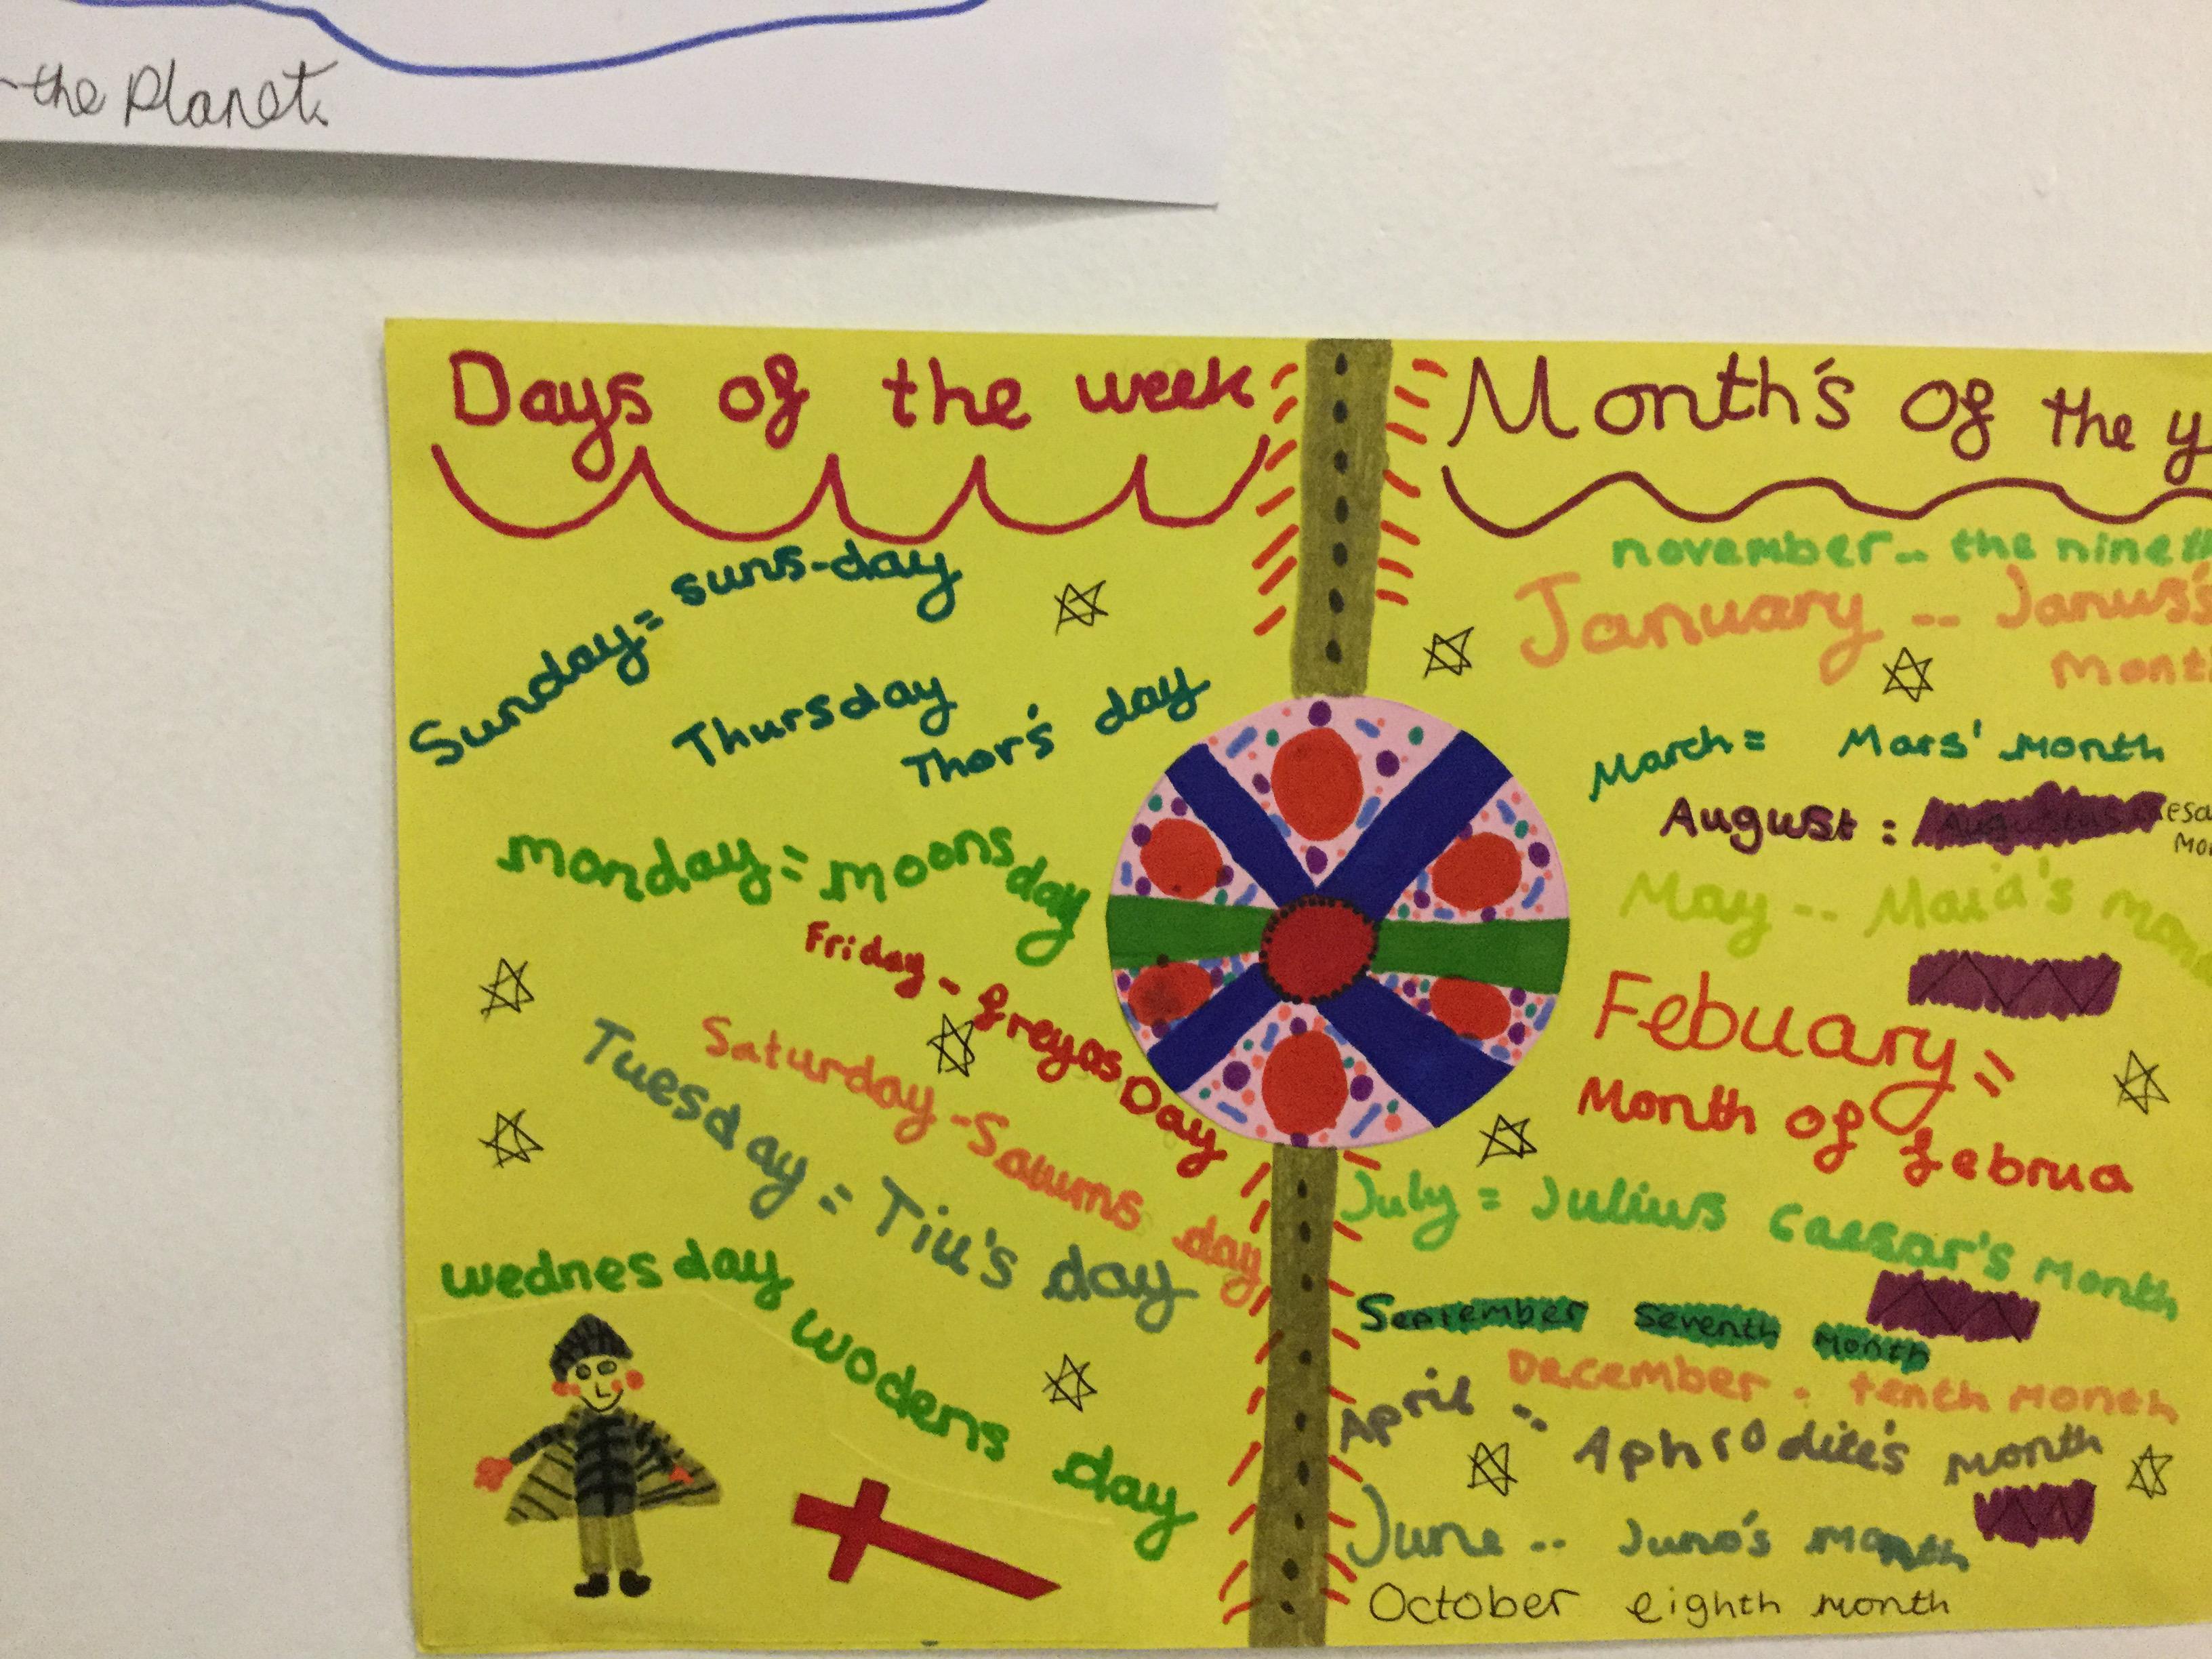 the Planet.
Days of the week
Sunday = suns-day
Thursday
Thor's day
monday = moons day
Friday - freyas Day
Saturday - Saturns day
Tuesday = Tiu's day
wednesday wodens day
Month's of the y
november -- the ninet
January -- Janus's
Mont
March = Mars' Month
August : Augustus
Mo
May -- Maia's mon
Febuary =
Month of februa
July = Julius Caesar's Month
September Seventh Month
December . tenth Month
April -- Aphrodite's Month
June -- Juno's Month
October eighth month